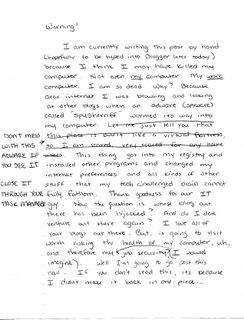 Warning!
I am currently writing this post by hand
(hopefully to be typed into Blogger later today)
because I think I may have killed my
computer. Not even my computer. My work
computer. I am so dead. Why? Because
area internet I was browsing and looking
at other blogs when an adware (spyware)
called SpySherriff wormed its way into
my computer. Let me just tell you that
this place is built like a virtual fortress,
so I am scared, very scared for any home
users. This thing got into my registry and
installed other programs and changed my
internet preferences and all kinds of other
stuff that my tech challenged brain cannot
fully fathom. Thank goodness for our IT
guy. Now the question is whose blog out
there has been hijacked? And do I dare
venture out there again? I love all of
your blogs out there. But, is going to visit
worth risking the health of my computer, uh,
and therefore my job security (I would
imagine). Well I'm going to go post this
now. If you don't read this, its because
I didn't make it back in one piece...
DON'T MESS
WITH THIS
ADWARE IF
YOU SEE IT
CLOSE IT
THROUGH YOUR
TASK MANAGER